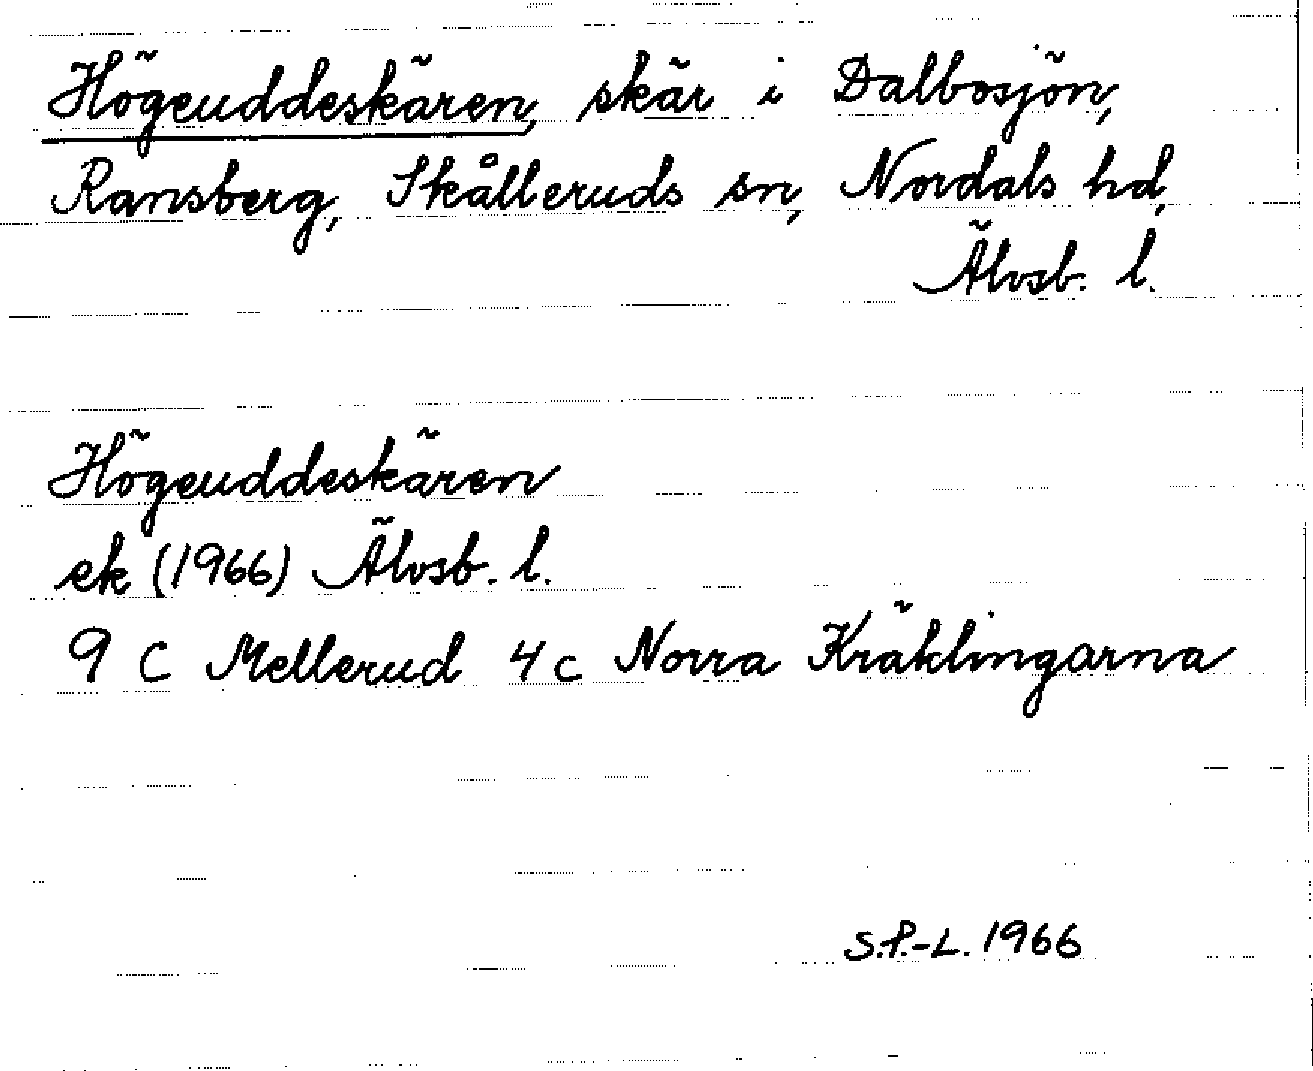 Högeuddeskären, skär i Dalbosjön,
Ransberg, Skålleruds sn, Nordals hd,
Älvsb. l.
Högeuddeskären
ek (1966) Älvsb. l.
9 C Mellerud 4 c Norra Kräklingarna
S.P.-L. 1966